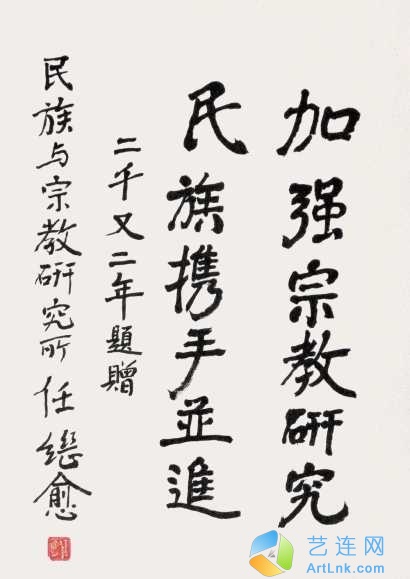 加强宗教研究
民族携手並進
二千又二年題贈
民族与宗教研究所 任继愈
艺连网
ArtLnk.com